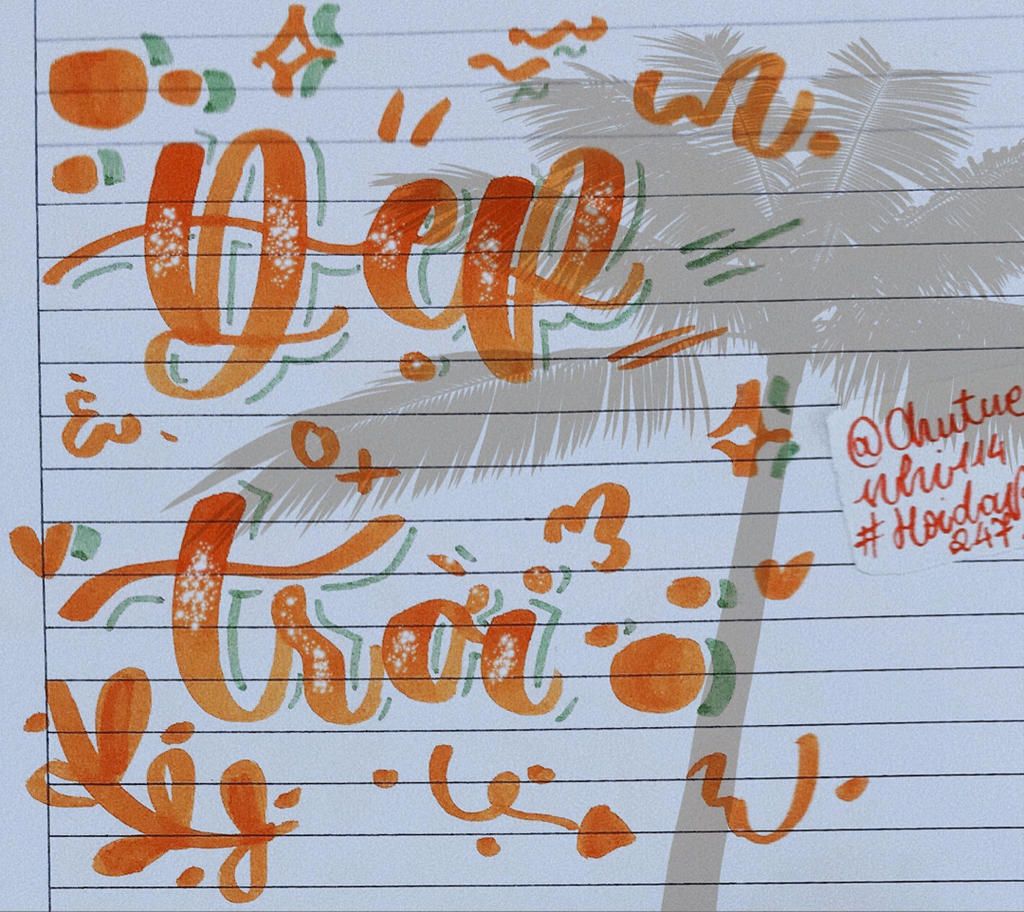 Đẹp
trời
@Chutue
#Hoidap
247